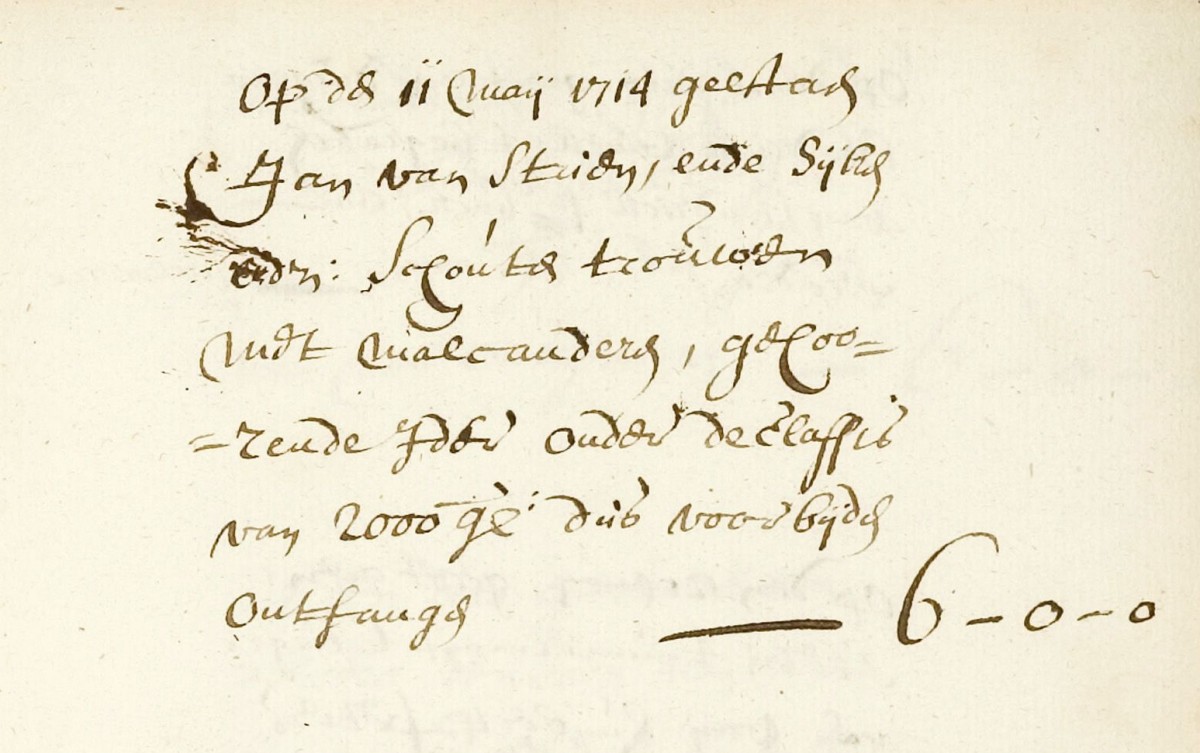 Op den 11 Maij 1714 geeft aen
Jan van Strien, ende
Schouten trouwen
met malcanderen, gehoo=
=rende Ider onder de Classis
van 2000 gl: dus voor bijden
ontfangen — 6-0-0